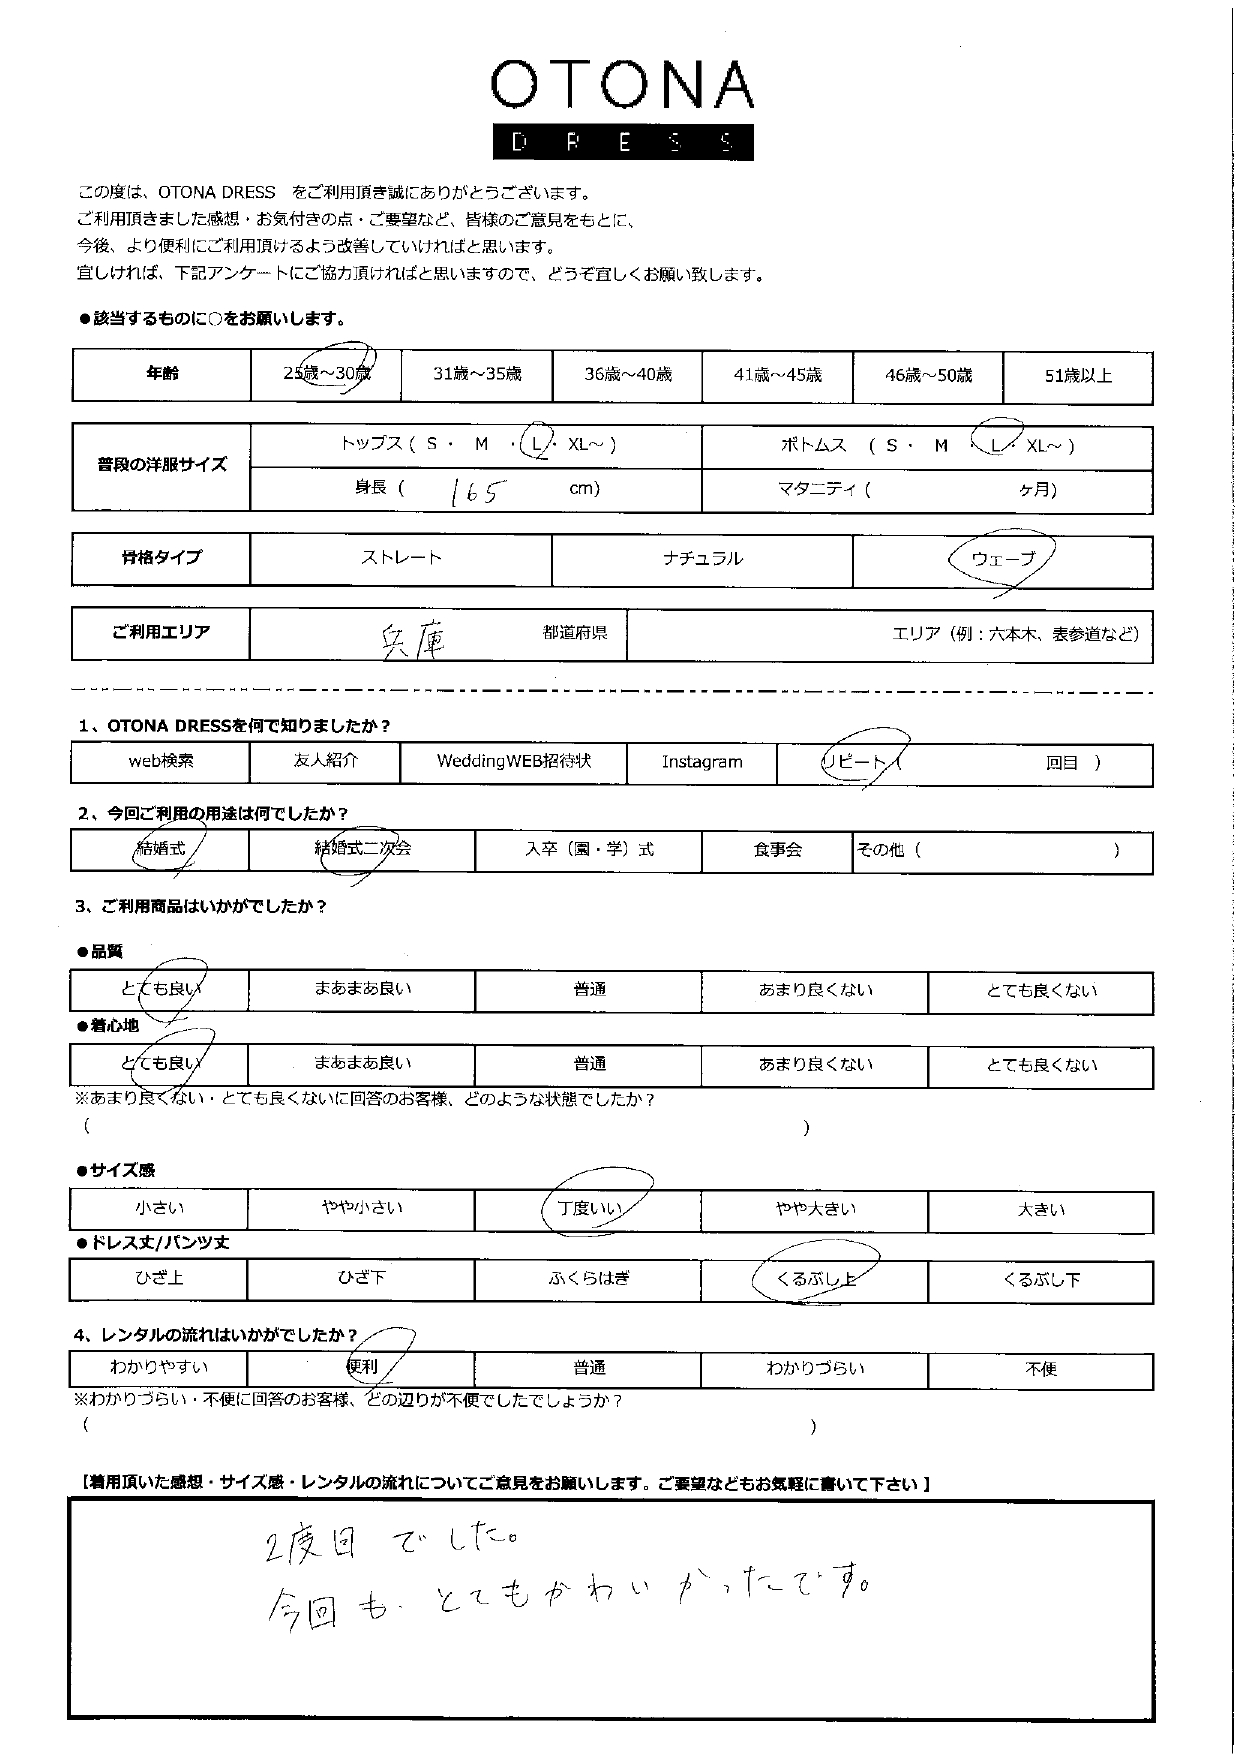 OTONA
DRESS
この度は、OTONA DRESS　をご利用頂き誠にありがとうございます。
ご利用頂きました感想・お気付きの点・ご要望など、皆様のご意見をもとに、
今後、より便利にご利用頂けるよう改善していければと思います。
宜しければ、下記アンケートにご協力頂ければと思いますので、どうぞ宜しくお願い致します。
●該当するものに○をお願いします。
年齢 25歳～30歳 31歳～35歳 36歳～40歳 41歳～45歳 46歳～50歳 51歳以上
普段の洋服サイズ
トップス（ S ・ M ・ L ・ XL～ ） ボトムス （ S ・ M ・ L ・ XL～ ）
身長（ 165 cm） マタニティ（ ヶ月）
骨格タイプ ストレート ナチュラル ウェーブ
ご利用エリア 兵庫 都道府県 エリア（例：六本木、表参道など）
1、OTONA DRESSを何で知りましたか？
web検索 友人紹介 WeddingWEB招待状 Instagram リピート（ 回目 ）
2、今回ご利用の用途は何でしたか？
結婚式 結婚式二次会 入卒（園・学）式 食事会 その他（ ）
3、ご利用商品はいかがでしたか？
●品質
とても良い まあまあ良い 普通 あまり良くない とても良くない
●着心地
とても良い まあまあ良い 普通 あまり良くない とても良くない
※あまり良くない・とても良くないに回答のお客様、どのような状態でしたか？
（ ）
●サイズ感
小さい やや小さい 丁度いい やや大きい 大きい
●ドレス丈/パンツ丈
ひざ上 ひざ下 ふくらはぎ くるぶし上 くるぶし下
4、レンタルの流れはいかがでしたか？
わかりやすい 便利 普通 わかりづらい 不便
※わかりづらい・不便に回答のお客様、どの辺りが不便でしたでしょうか？
（ ）
【着用頂いた感想・サイズ感・レンタルの流れについてご意見をお願いします。ご要望などもお気軽に書いて下さい】
2度目でした。
今回も とてもかわいかったです。